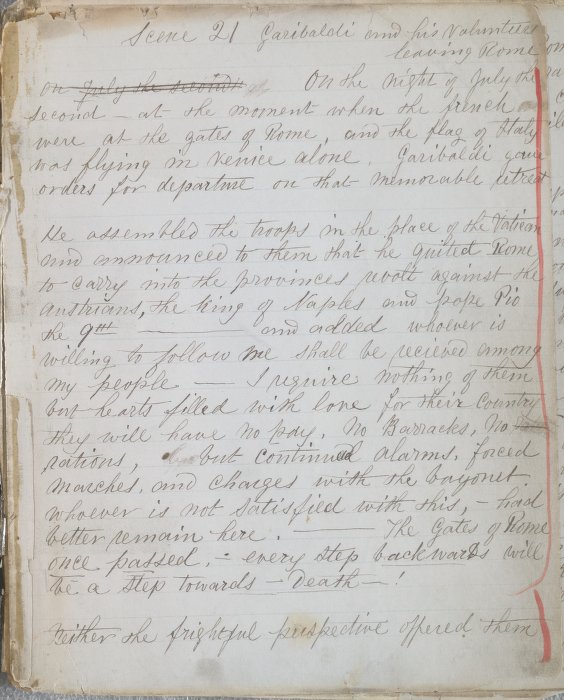 Scene 21 Garibaldi and his Volunteers
leaving Rome
on July the second On the night of July the
second – at the moment when the french
were at the gates of Rome, and the flag of Italy
was flying in Venice alone. Garibaldi gave
orders for departure on that memorable retreat
He assembled the troops in the place of the Vatican
and announced to them that he quited Rome
to carry into the provinces revolt against the
Austrians, the King of Naples and pope Pio
the 9th ——— and added whoever is
willing to follow me shall be recieved among
my people — I require nothing of them
but hearts filled with love for their Country
they will have no pay, No Barracks, No
rations, but continued alarms, forced
marches, and charges with the bayonet
whoever is not satisfied with this, – had
better remain here. ——— The Gates of Rome
once passed, – every step backwards will
be a step towards – Death – !
Neither the frightful prespective offered them